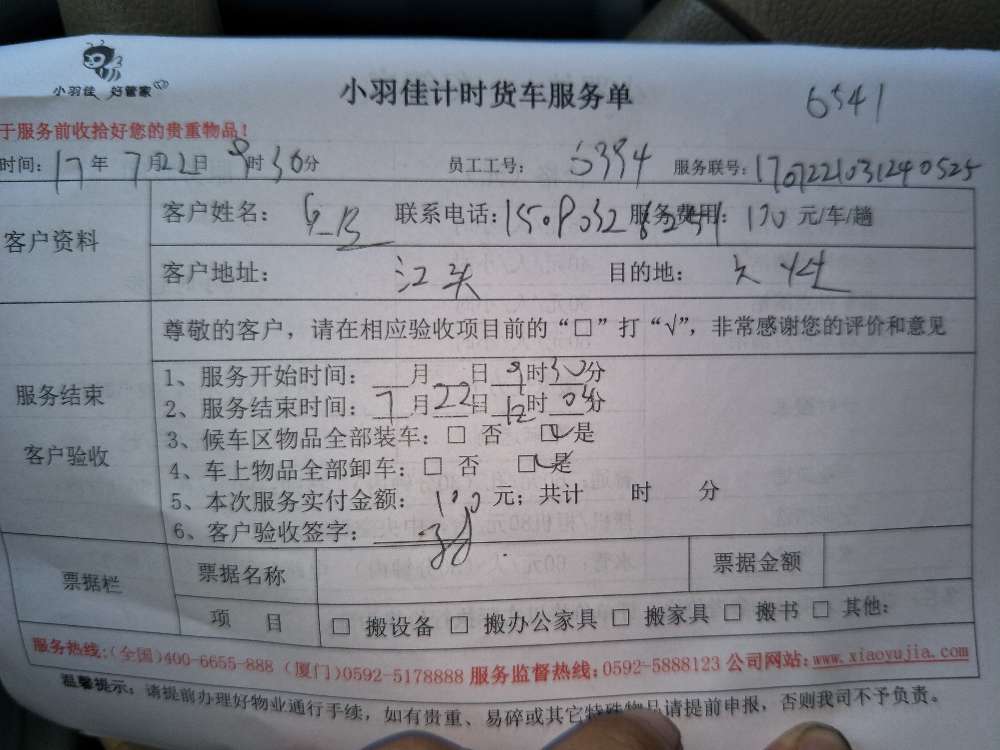 小羽佳 好管家
小羽佳计时货车服务单 6541
于服务前收拾好您的贵重物品！
时间：17年7月22日9时30分 员工工号：5394 服务联号：1707221031240525
客户资料
客户姓名： 联系电话： 服务费用：170元/车/趟
客户地址：江头 目的地：
服务结束
客户验收
尊敬的客户，请在相应验收项目前的“□”打“√”，非常感谢您的评价和意见
1、服务开始时间：__月__日9时30分
2、服务结束时间：7月22日12时04分
3、候车区物品全部装车：□ 否 ☑是
4、车上物品全部卸车：□ 否 ☑是
5、本次服务实付金额：170元；共计 时 分
6、客户验收签字：
票据栏
票据名称 票据金额
项 目 □ 搬设备 □ 搬办公家具 □ 搬家具 □ 搬书 □ 其他：
服务热线：(全国)400-6655-888 (厦门)0592-5178888 服务监督热线：0592-5888123 公司网站：www.xiaoyujia.com
温馨提示：请提前办理好物业通行手续，如有贵重、易碎或其它特殊物品请提前申报，否则我司不予负责。